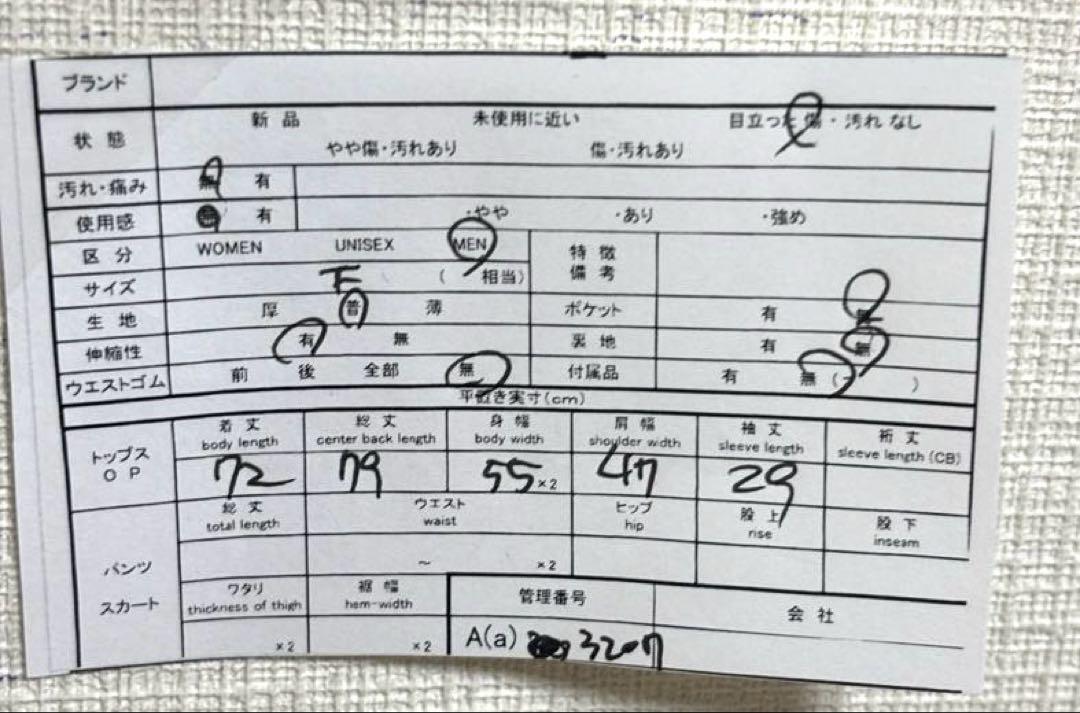 ブランド
状態 新品 未使用に近い 目立った傷・汚れなし
やや傷・汚れあり 傷・汚れあり
汚れ・痛み 無 有
使用感 有 ・やや ・あり ・強め
区分 WOMEN UNISEX MEN 特徴備考
サイズ F ( 相当)
生地 厚 普 薄 ポケット 有 無
伸縮性 有 無 裏地 有 無
ウエストゴム 前 後 全部 無 付属品 有 無 ( )
平置き実寸(cm)
トップス OP 着丈 総丈 身幅 肩幅 袖丈 裄丈
body length center back length body width shoulder width sleeve length sleeve length (CB)
72 79 55 ×2 47 29
パンツ スカート 総丈 ウエスト ヒップ 股上 股下
total length waist hip rise inseam
～ ×2
ワタリ 裾幅 管理番号 会社
thickness of thigh hem-width
×2 ×2 A(a) 3207